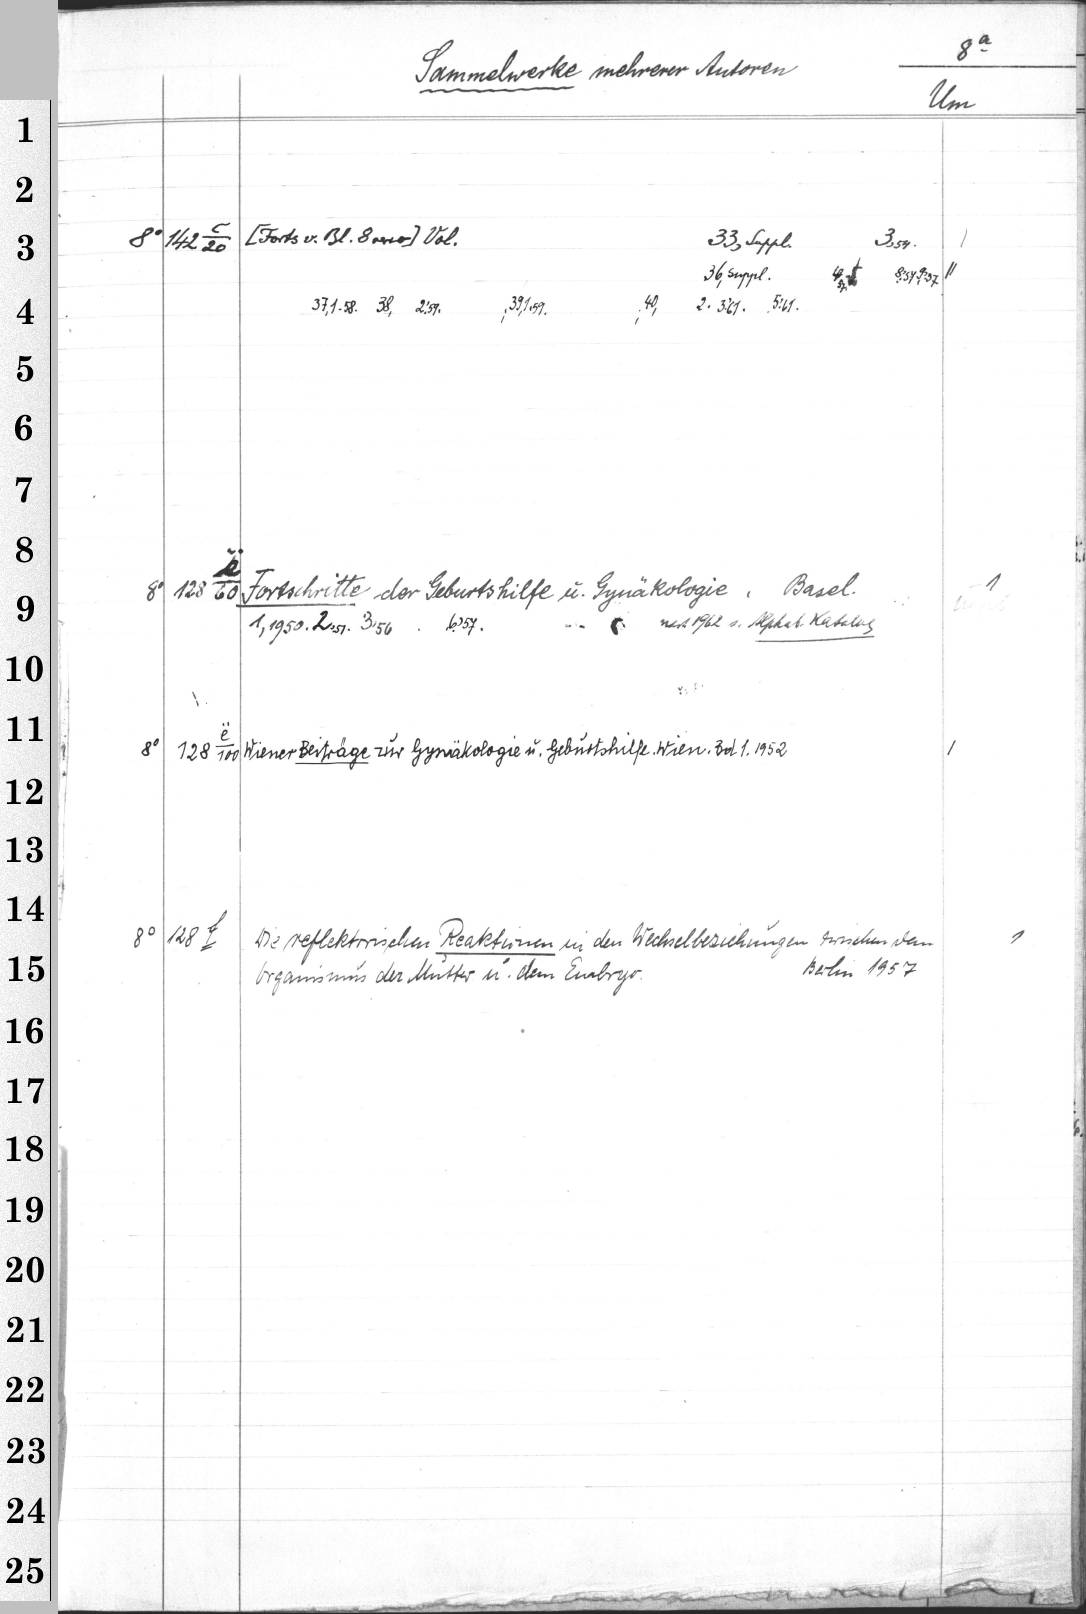 Sammelwerke mehrerer Autoren
8a
Um
1
2
3
8° 142 c/20 [Forts v. Bl. 8 verso] Vol. 33, Suppl. 3:54.
36, Suppl. 8:57 9:57
4
37,1.58. 38, 2:59. ,39,1.59. ,40, 2. 3:61. 5:61.
5
6
7
8
9
8° 128 ë/60 Fortschritte der Geburtshilfe u. Gynäkologie, Basel. 1
1, 1950. 2:51. 3:56 6:57. 1962 s. Alphab. Katalog
10
11
8° 128 ë/100 Wiener Beiträge zur Gynäkologie u. Geburtshilfe. Wien. Bd 1. 1952 1
12
13
14
8° 128 f Die reflektorischen Reaktionen in den Wechselbeziehungen zwischen dem 1
15
Organismus der Mutter u. dem Embryo. Berlin 1957
16
17
18
19
20
21
22
23
24
25